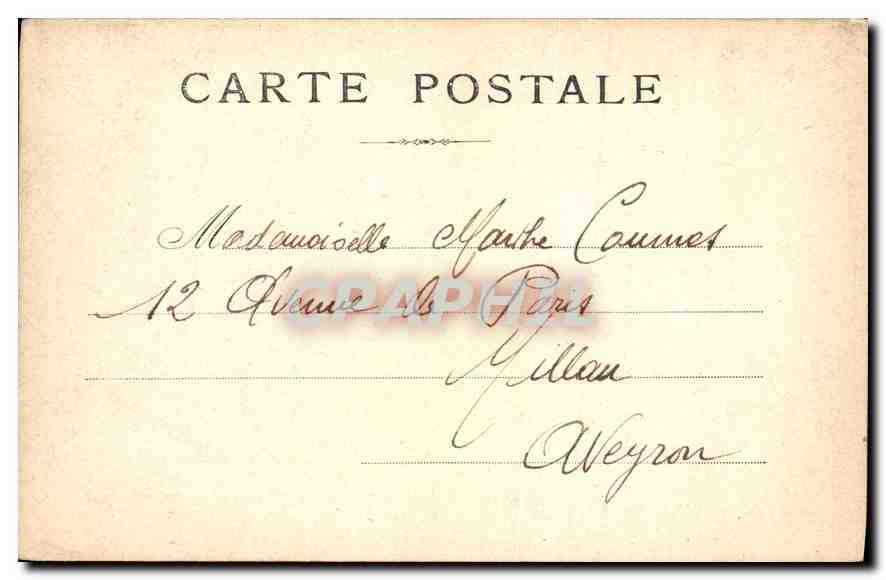 CARTE POSTALE
Mademoiselle Marthe
12 Avenue de Paris
CPAPHIL
Millau
Aveyron